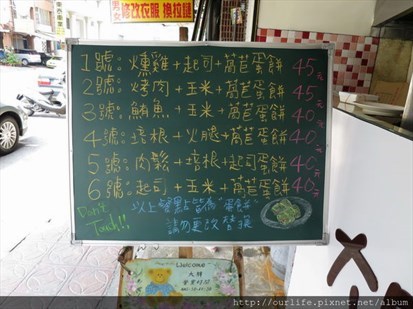 修改衣服 換拉鏈
1號：燻雞+起司+萵苣蛋餅 45元
2號：烤肉+玉米+萵苣蛋餅 45元
3號：鮪魚+玉米+萵苣蛋餅 40元
4號：培根+火腿+萵苣蛋餅 40元
5號：肉鬆+培根+起司蛋餅 40元
6號：起司+玉米+萵苣蛋餅 40元
以上餐點皆為"蛋餅"
請勿更改 替換
Don't
Touch!!
Welcome
營業時間
http://ourlife.pixnet.net/album